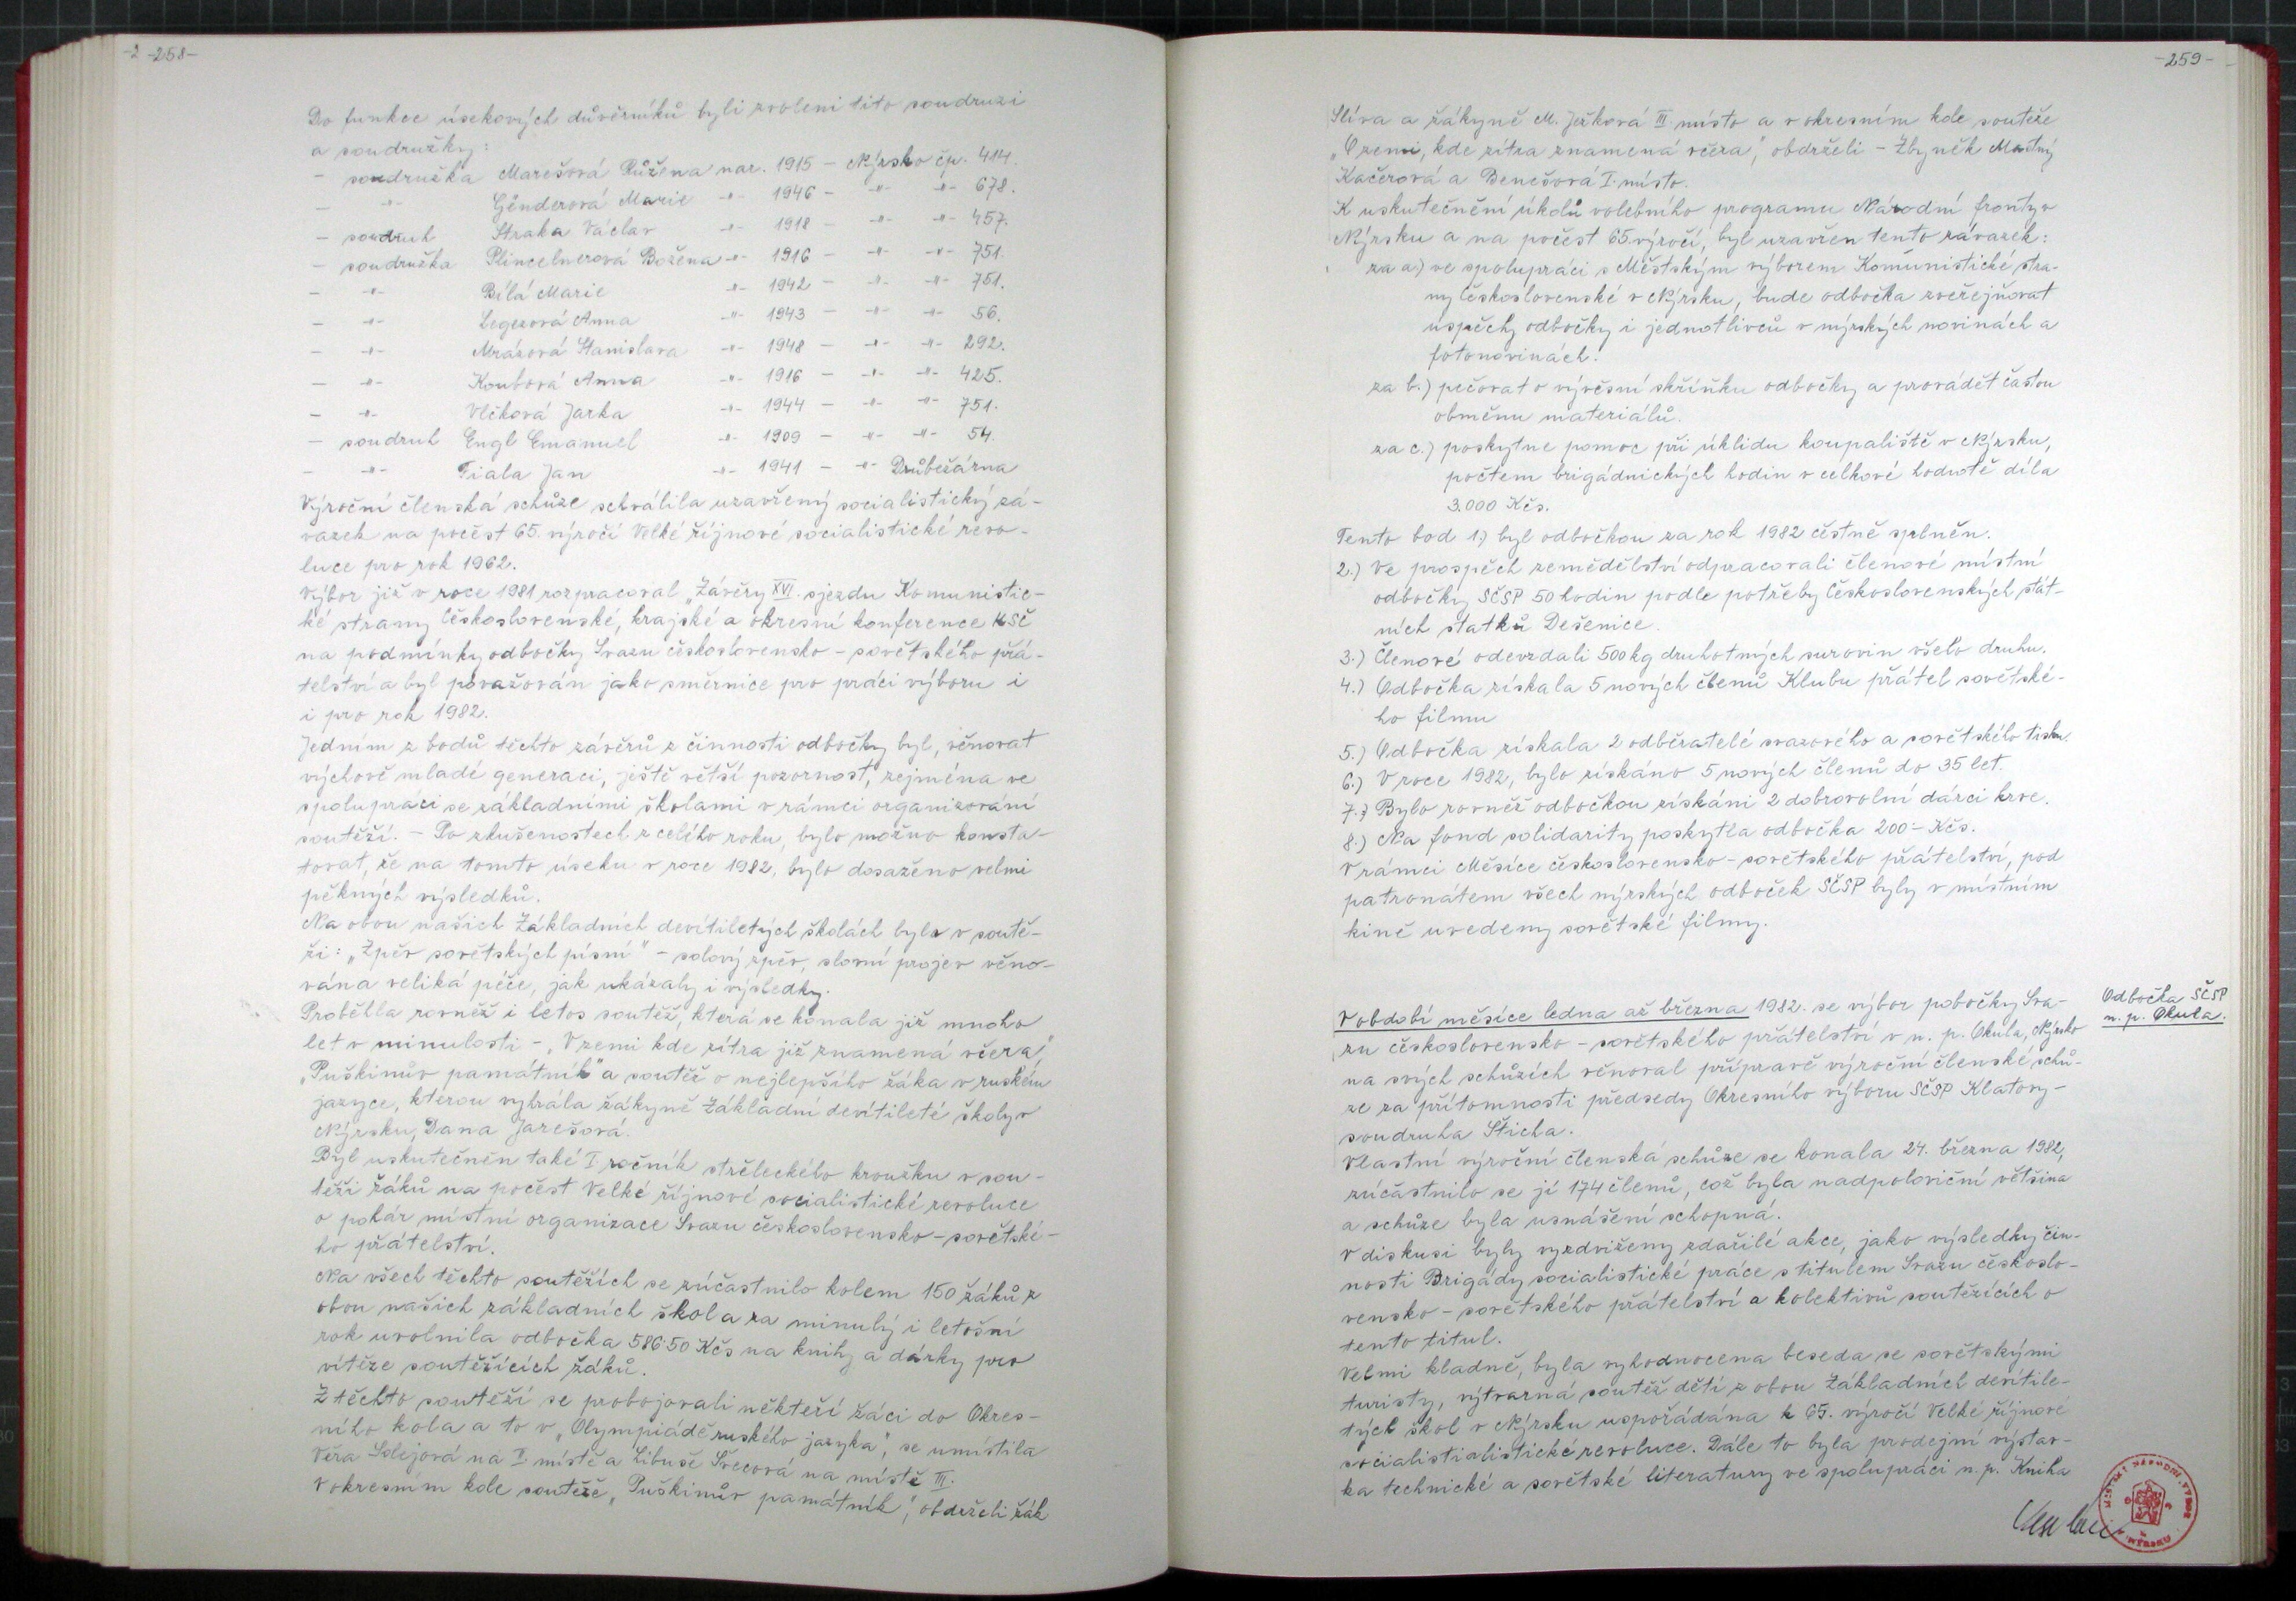 -2 -258-
Do funkce úsekových důvěrníků byli zvoleni tito soudruzi
a soudružky:
- soudružka Marešová Růžena nar. 1915 - Nýrsko čp. 414.
- -"- Génderová Marie -"- 1946 - -"- -"- 678.
- soudruh Straka Václav -"- 1918 - -"- -"- 457.
- soudružka Plincelnerová Božena -"- 1916 - -"- -"- 751.
- -"- Bílá Marie -"- 1942 - -"- -"- 751.
- -"- Legezová Anna -"- 1943 - -"- -"- 56.
- -"- Mrázová Stanislava -"- 1948 - -"- -"- 292.
- -"- Koubová Anna -"- 1916 - -"- -"- 425.
- -"- Vlčková Jarka -"- 1944 - -"- -"- 751.
- soudruh Engl Emanuel -"- 1909 - -"- -"- 54.
- -"- Fiala Jan -"- 1941 - -"- Drůbežárna
Výroční členská schůze schválila uzavřený socialistický zá-
vazek na počest 65. výročí Velké říjnové socialistické revo-
luce pro rok 1962.
Výbor již v roce 1981 rozpracoval „Závěry XVI. sjezdu Komunistic-
ké strany Československé, krajské a okresní konference KSČ
na podmínky odbočky Svazu československo - sovětského přá-
telství a byl považován jako směrnice pro práci výboru i
i pro rok 1982.
Jedním z bodů těchto závěrů z činnosti odbočky byl, věnovat
výchově mladé generaci, ještě větší pozornost, zejména ve
spolupráci se základními školami v rámci organizování
soutěží. - Po zkušenostech z celého roku, bylo možno konsta-
tovat, že na tomto úseku v roce 1982, bylo dosaženo velmi
pěkných výsledků.
Na obou našich Základních devítiletých školách byla v soutě-
ži: „Zpěv sovětských písní" - solový zpěv, slovní projev věno-
vána veliká péče, jak ukázaly i výsledky.
Proběhla rovněž i letos soutěž, která se konala již mnoho
let v minulosti - „V zemi kde zítra již znamená včera",
„Puškinův památník" a soutěž o nejlepšího žáka v ruském
jazyce, kterou vyhrála žákyně Základní devítileté školy v
Nýrsku, Dana Jarešová.
Byl uskutečněn také I ročník střeleckého kroužku v sou-
těži žáků na počest Velké říjnové socialistické revoluce
o pohár místní organizace Svazu československo - sovětské-
ho přátelství.
Na všech těchto soutěžích se zúčastnilo kolem 150 žáků z
obou našich základních škol a za minulý i letošní
rok uvolnila odbočka 586·50 Kčs na knihy a dárky pro
vítěze soutěžících žáků.
Z těchto soutěží se probojovali někteří žáci do Okres-
ního kola a to v „Olympiádě ruského jazyka", se umístila
Věra Solejová na II. místě a Libuše Švecová na místě III.
V okresním kole soutěže „Puškinův památník", obdrželi žák
-259-
Slíva a žákyně M. Ježková III. místo a v okresním kole soutěže
„O zemi, kde zítra znamená včera", obdrželi - Zbyněk Mastný
Kačerová a Benešová I. místo.
K uskutečnění úkolů volebního programu Národní fronty v
Nýrsku a na počest 65. výročí, byl uzavřen tento závazek:
za a.) ve spolupráci s Městským výborem Komunistické stra-
ny Československé v Nýrsku, bude odbočka zveřejňovat
úspěchy odbočky i jednotlivců v nýrských novinách a
fotonovinách.
za b.) pečovat o vývěsní skříňku odbočky a provádět častou
obměnu materiálů.
za c.) poskytne pomoc při úklidu koupaliště v Nýrsku,
počtem brigádnických hodin v celkové hodnotě díla
3.000 Kčs.
Tento bod 1.) byl odbočkou za rok 1982 čestně splněn.
2.) Ve prospěch zemědělství odpracovali členové místní
odbočky SČSP 50 hodin podle potřeby Československých stát-
ních statků Dešenice.
3.) Členové odevzdali 500 kg druhotných surovin všeho druhu.
4.) Odbočka získala 5 nových členů Klubu přátel sovětské-
ho filmu
5.) Odbočka získala 2 odběratelé svazového a sovětského tisku.
6.) V roce 1982, bylo získáno 5 nových členů do 35 let.
7.) Bylo rovněž odbočkou získáni 2 dobrovolní dárci krve.
8.) Na fond solidarity poskytla odbočka 200.- Kčs.
V rámci Měsíce československo - sovětského přátelství, pod
patronátem všech nýrských odboček SČSP byly v místním
kině uvedeny sovětské filmy.
Odbočka SČSP
n. p. Okula.
V období měsíce ledna až března 1982. se výbor pobočky Sva-
zu československo - sovětského přátelství v n. p. Okula, Nýrsko
na svých schůzích věnoval přípravě výroční členské schů-
ze za přítomnosti předsedy Okresního výboru SČSP Klatovy -
soudruha Šticha.
Vlastní výroční členská schůze se konala 24. března 1982,
zúčastnilo se jí 174 členů, což byla nadpoloviční většina
a schůze byla usnášení schopná.
V diskusi byly vyzdviženy zdařilé akce, jako výsledky čin-
nosti Brigády socialistické práce s titulem Svazu českoslo-
vensko - sovětského přátelství a kolektivů soutěžících o
tento titul.
Velmi kladně, byla vyhodnocena beseda se sovětskými
turisty, výtvarná soutěž dětí z obou Základních devítile-
tých škol v Nýrsku uspořádána k 65. výročí Velké říjnové
socialistialistické revoluce. Dále to byla prodejní výstav-
ka technické a sovětské literatury ve spolupráci n. p. Kniha
MĚSTSKÝ NÁRODNÍ VÝBOR V NÝRSKU